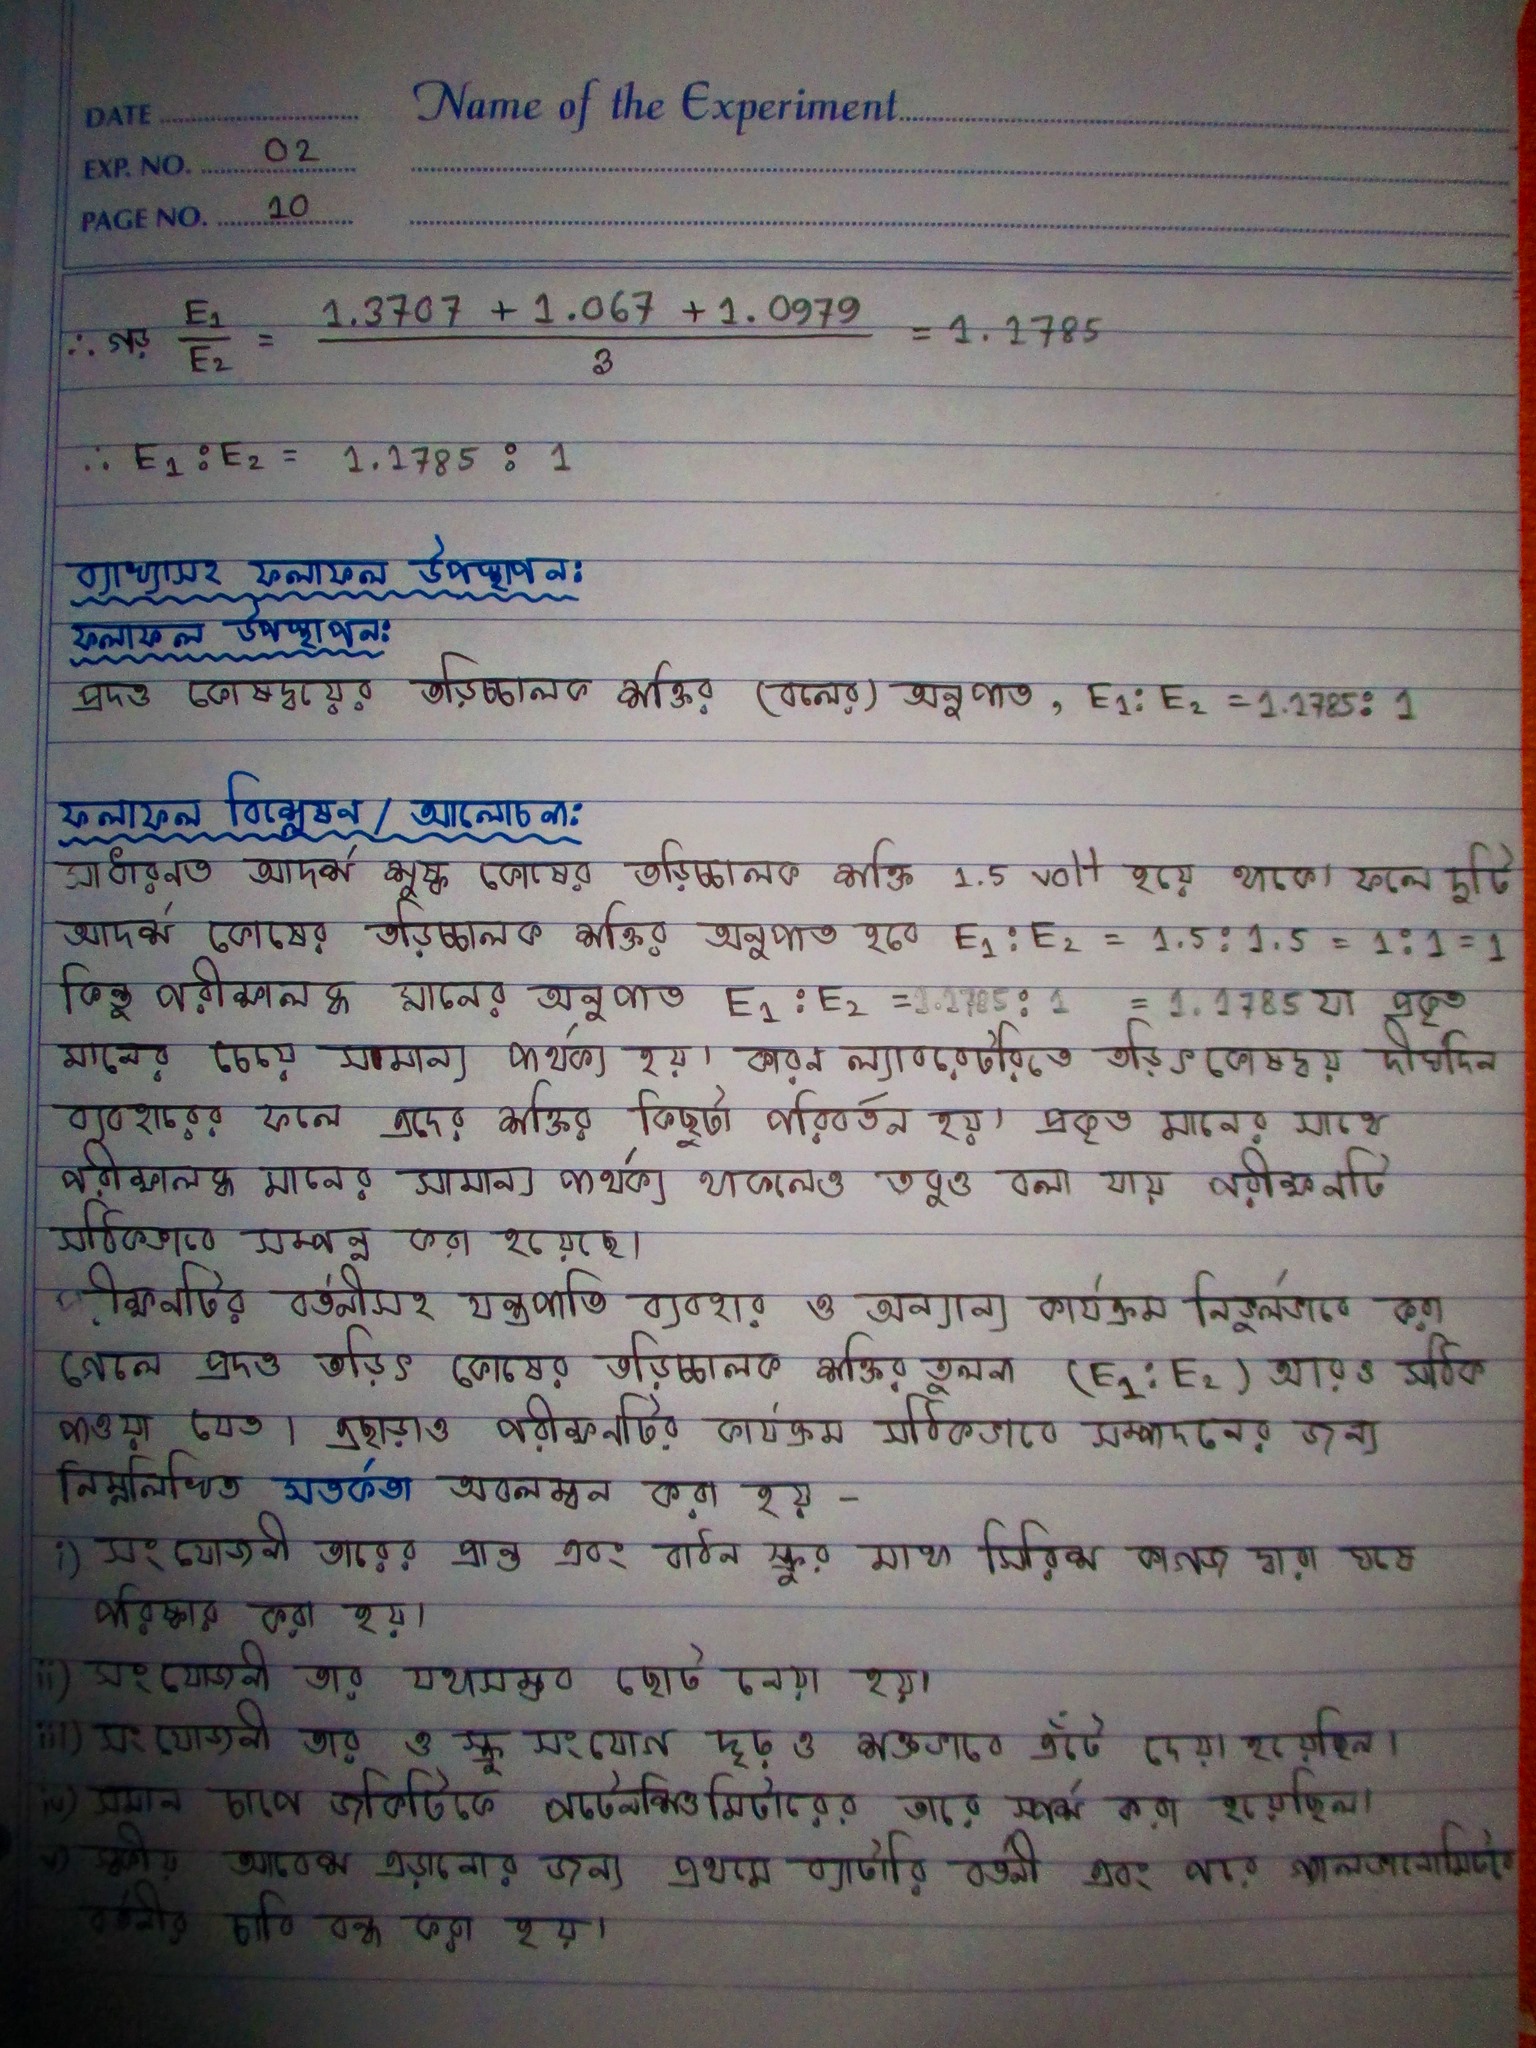 DATE
Name of the Experiment
EXP. NO. 02
PAGE NO. 10
∴ গড় E₁/E₂ = (1.3707 + 1.067 + 1.0979)/3 = 1.1785
∴ E₁ : E₂ = 1.1785 : 1
ব্যাখ্যাসহ ফলাফল উপস্থাপন:
ফলাফল উপস্থাপন:
প্রদত্ত কোষদ্বয়ের তড়িচ্চালক শক্তির (বলের) অনুপাত, E₁: E₂ = 1.1785: 1
ফলাফল বিশ্লেষন / আলোচনা:
সাধারনত আদর্শ শুষ্ক কোষের তড়িচ্চালক শক্তি 1.5 volt হয়ে থাকে। ফলে দুটি
আদর্শ কোষের তড়িচ্চালক শক্তির অনুপাত হবে E₁ : E₂ = 1.5 : 1.5 = 1 : 1 = 1
কিন্তু পরীক্ষালব্ধ মানের অনুপাত E₁ : E₂ = 1.1785 : 1 = 1.1785 যা প্রকৃত
মানের চেয়ে সামান্য পার্থক্য হয়। কারন ল্যাবরেটরিতে তড়িৎ কোষদ্বয় দীর্ঘদিন
ব্যবহারের ফলে এদের শক্তির কিছুটা পরিবর্তন হয়। প্রকৃত মানের সাথে
পরীক্ষালব্ধ মানের সামান্য পার্থক্য থাকলেও তবুও বলা যায় পরীক্ষনটি
সঠিকভাবে সম্পন্ন করা হয়েছে।
পরীক্ষনটির বর্তনীসহ যন্ত্রপাতি ব্যবহার ও অন্যান্য কার্যক্রম নির্ভুলভাবে করা
গেলে প্রদত্ত তড়িৎ কোষের তড়িচ্চালক শক্তির তুলনা (E₁ : E₂) আরও সঠিক
পাওয়া যেত। এছাড়াও পরীক্ষনটির কার্যক্রম সঠিকভাবে সম্পাদনের জন্য
নিম্নলিখিত সতর্কতা অবলম্বন করা হয় -
i) সংযোজনী তারের প্রান্ত এবং বাঁধন স্ক্রুর মাথা সিরিশ কাগজ দ্বারা ঘষে
পরিষ্কার করা হয়।
ii) সংযোজনী তার যথাসম্ভব ছোট নেয়া হয়।
iii) সংযোজনী তার ও স্ক্রু সংযোগ দৃঢ় ও শক্তভাবে এঁটে দেয়া হয়েছিল।
iv) সমান চাপে জকিটিকে পটেনশিওমিটারের তারে স্পর্শ করা হয়েছিল।
v) স্বকীয় আবেশ এড়ানোর জন্য প্রথমে ব্যাটারি বর্তনী এবং পরে গ্যালভানোমিটার
বর্তনীর চাবি বন্ধ করা হয়।